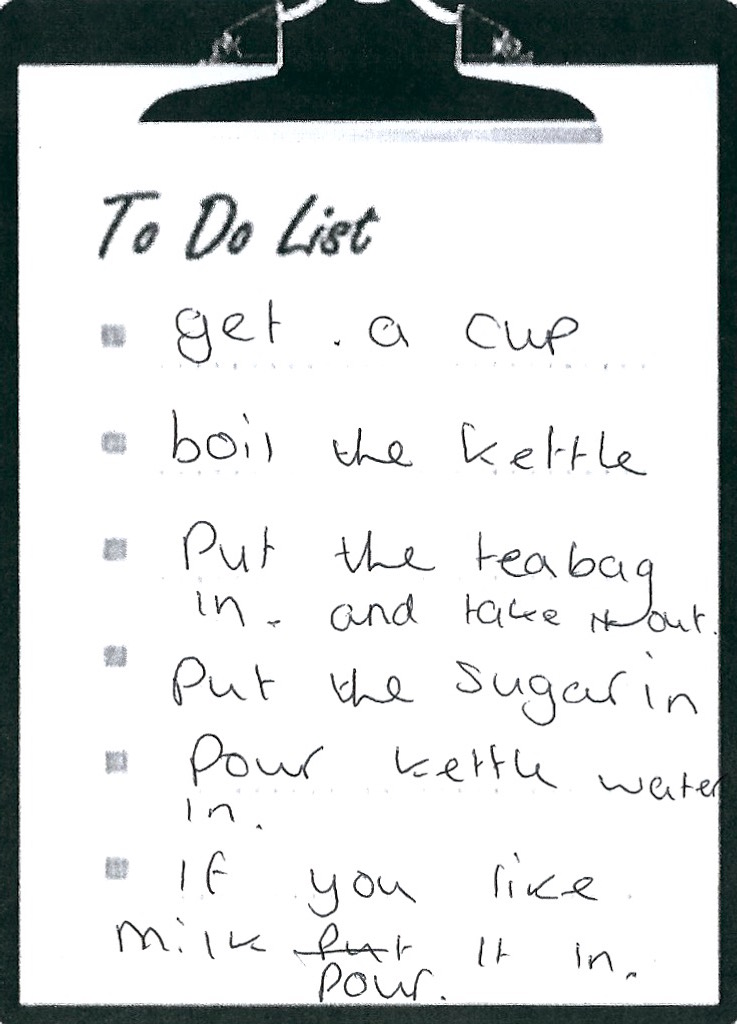 To Do List
get . a cup
boil the kettle
Put the teabag
in. and take it out.
Put the sugar in
Pour kettle water
in.
If you like
milk put it in.
pour.